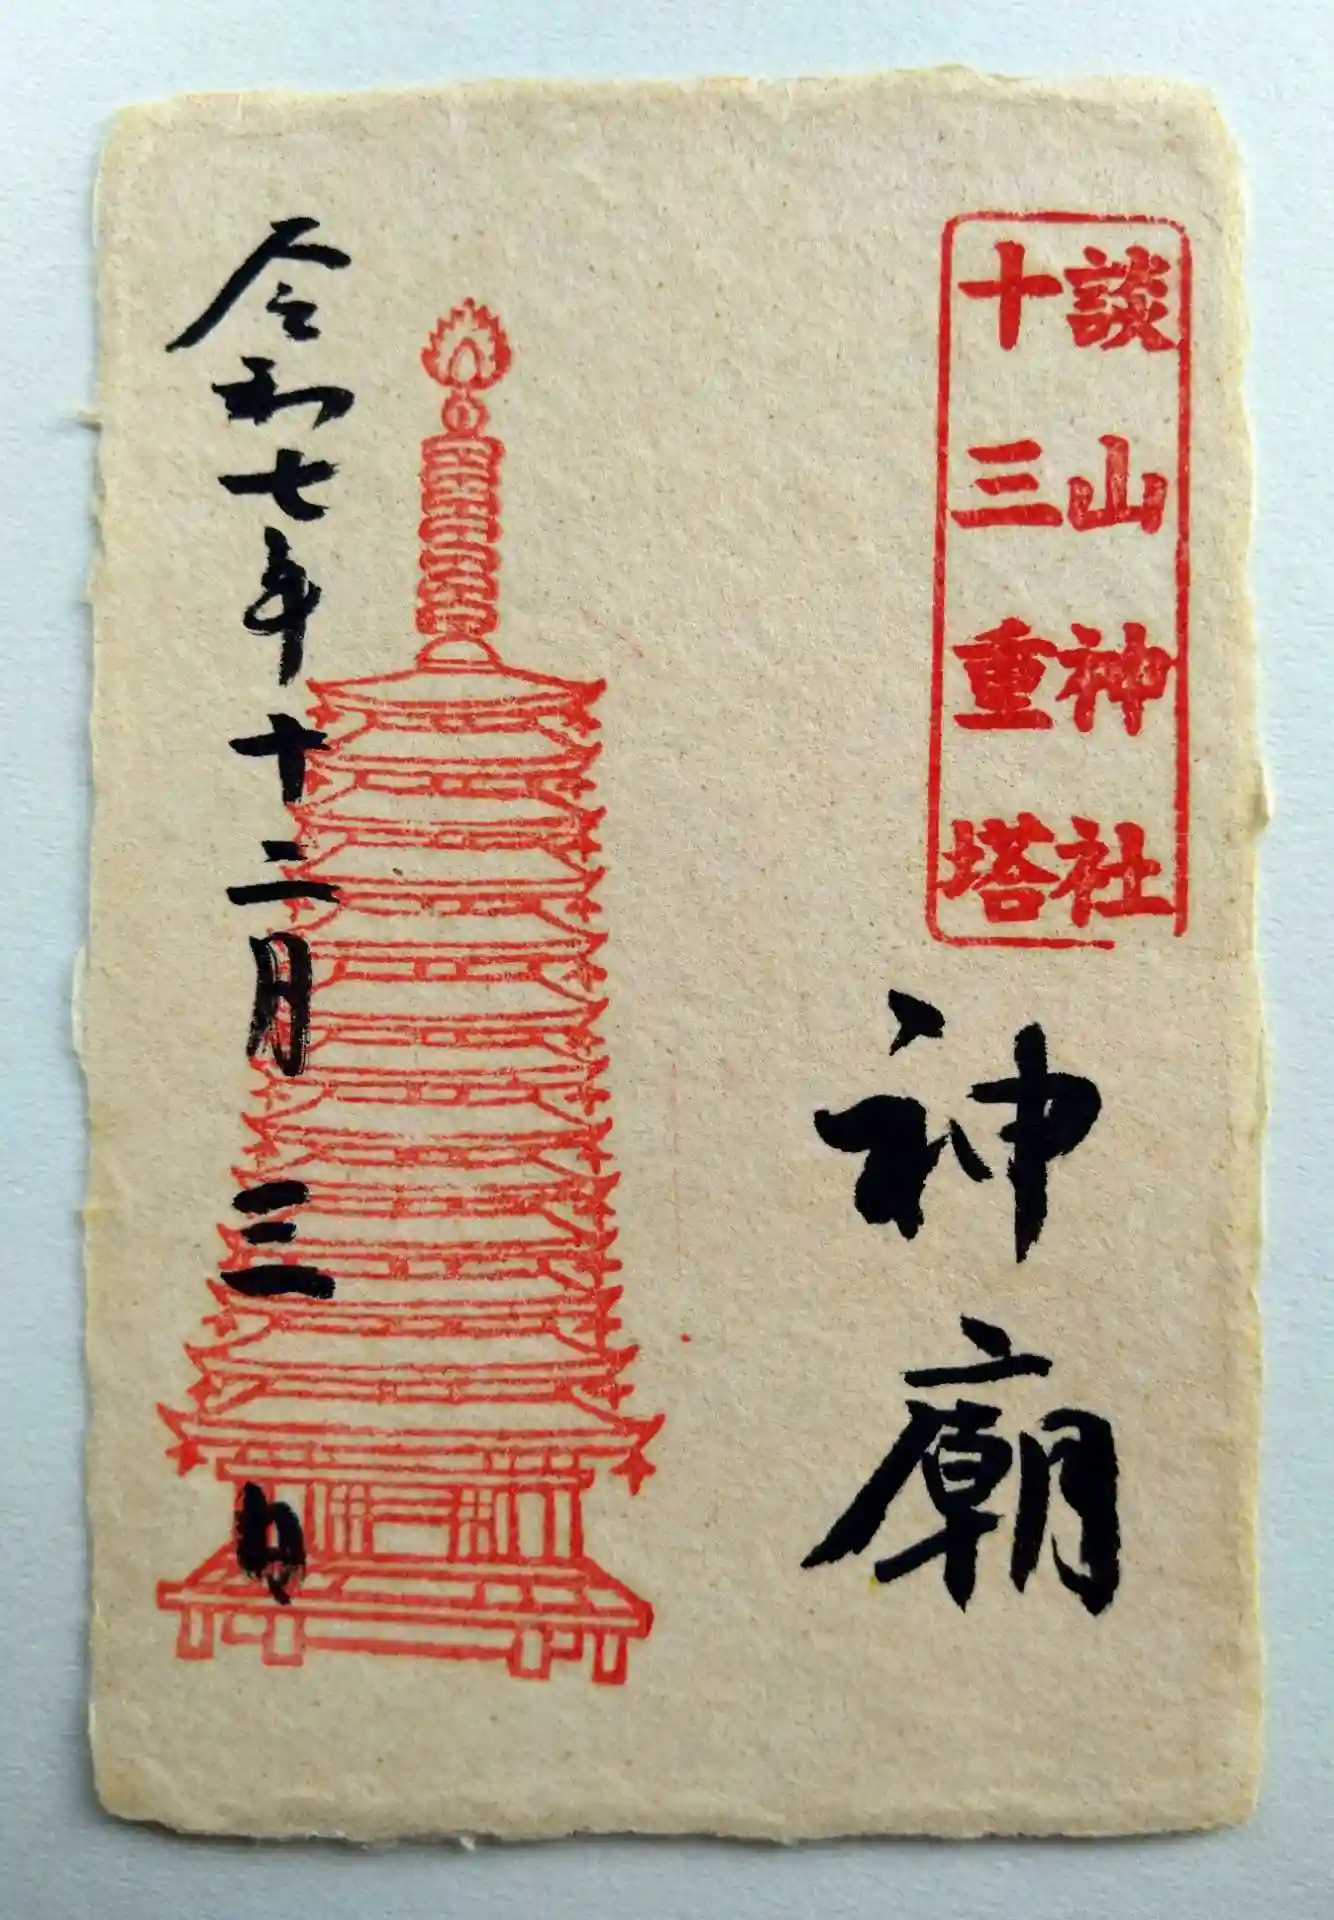 談山神社
十三重塔
神廟
令和七年十二月三日